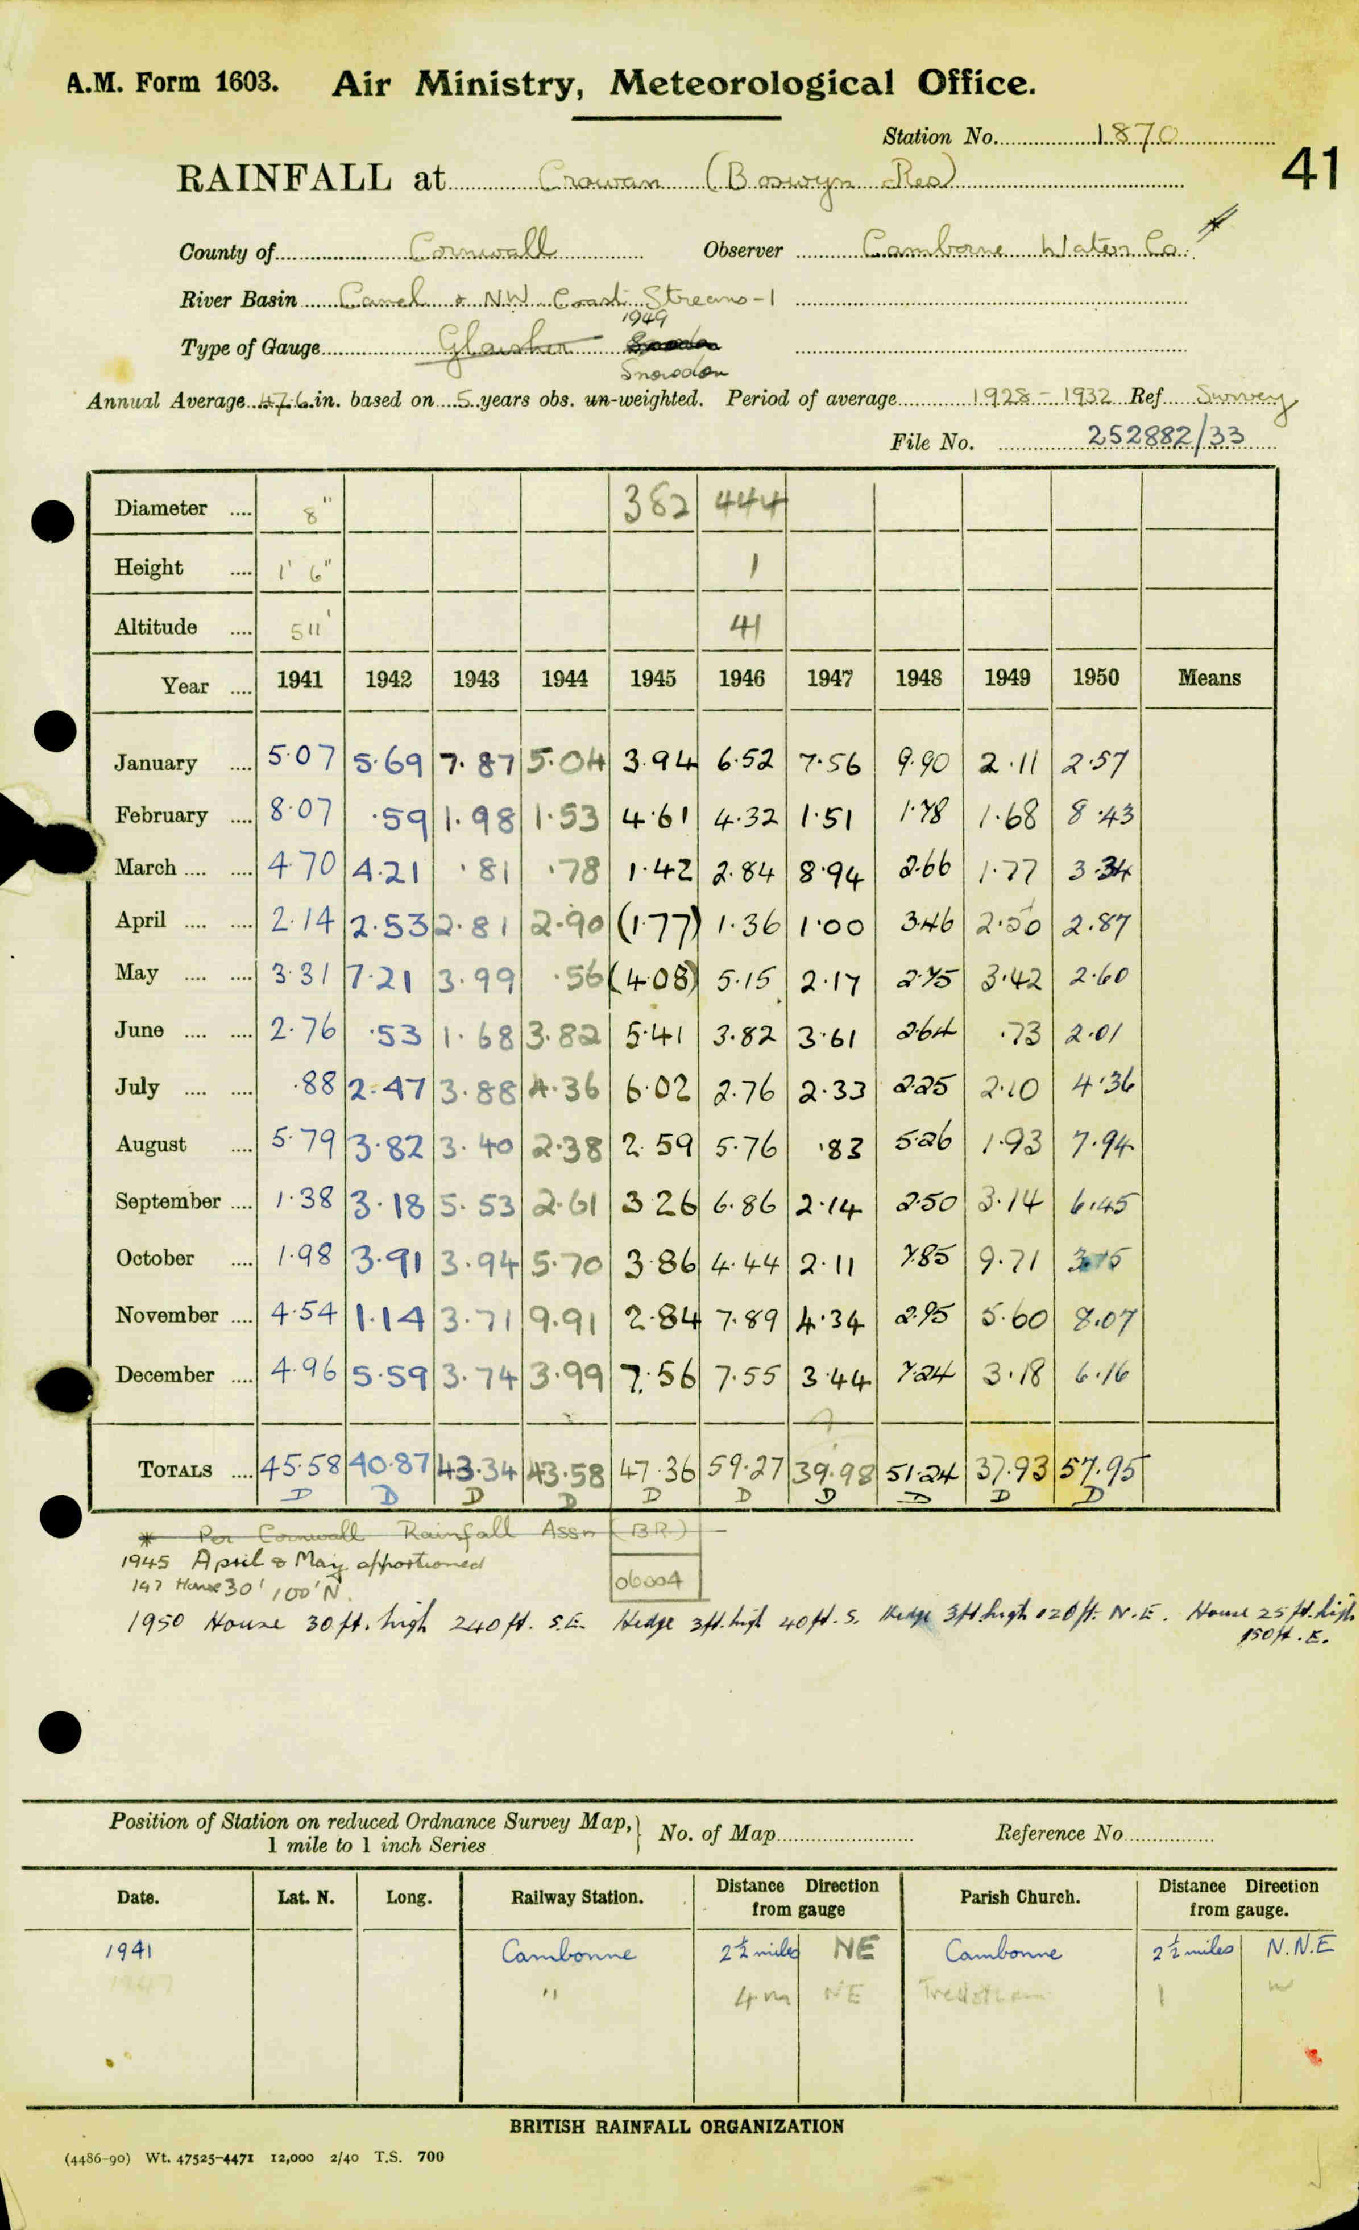 A.M. Form 1603. Air Ministry, Meteorological Office.
Station No. 1870
41
RAINFALL at Crowan (Boswyn Res)
County of Cornwall Observer Camborne Water Co. *
River Basin Camel & NW Coast Streams-1
1949
Type of Gauge Glaisher
Snowdon
Annual Average 47.6 in. based on 5 years obs. un-weighted. Period of average 1928-1932 Ref Survey
File No. 252882/33
Diameter .... 8" 382 444
Height .... 1' 6" 1
Altitude .... 511' 41
Year .... 1941 1942 1943 1944 1945 1946 1947 1948 1949 1950 Means
January .... 5.07 5.69 7.87 5.04 3.94 6.52 7.56 9.90 2.11 2.57
February .... 8.07 .59 1.98 1.53 4.61 4.32 1.51 1.78 1.68 8.43
March .... .... 4.70 4.21 .81 .78 1.42 2.84 8.94 2.66 1.77 3.34
April .... .... 2.14 2.53 2.81 2.90 (1.77) 1.36 1.00 3.46 2.56 2.87
May .... .... 3.31 7.21 3.99 .56 (4.08) 5.15 2.17 2.75 3.42 2.60
June .... .... 2.76 .53 1.68 3.82 5.41 3.82 3.61 2.64 .73 2.01
July .... .... .88 2.47 3.88 4.36 6.02 2.76 2.33 2.25 2.10 4.36
August .... 5.79 3.82 3.40 2.38 2.59 5.76 .83 5.26 1.93 7.94
September .... 1.38 3.18 5.53 2.61 3.26 6.86 2.14 2.50 3.14 6.45
October .... 1.98 3.91 3.94 5.70 3.86 4.44 2.11 7.85 9.71 3.15
November .... 4.54 1.14 3.71 9.91 2.84 7.89 4.34 2.95 5.60 8.07
December .... 4.96 5.59 3.74 3.99 7.56 7.55 3.44 7.24 3.18 6.16
TOTALS .... 45.58 40.87 43.34 43.58 47.36 59.27 39.98 51.24 37.93 57.95
D D D D D D D D D D
* Per Cornwall Rainfall Assn (BR)
1945 April & May apportioned
147 House 30' 100' N. 06004
1950 House 30 ft. high 240 ft. S.E. Hedge 3ft. high 40 ft. S. Hedge 3ft. high 120 ft. N.E. House 25 ft. high
150 ft. E.
Position of Station on reduced Ordnance Survey Map, 1 mile to 1 inch Series No. of Map Reference No
Date. Lat. N. Long. Railway Station. Distance Direction from gauge Parish Church. Distance Direction from gauge.
1941 Camborne 2½ miles NE Camborne 2½ miles N.N.E
1947 " 4 m NE 1 W
BRITISH RAINFALL ORGANIZATION
(4486-90) Wt. 47525-4471 12,000 2/40 T.S. 700